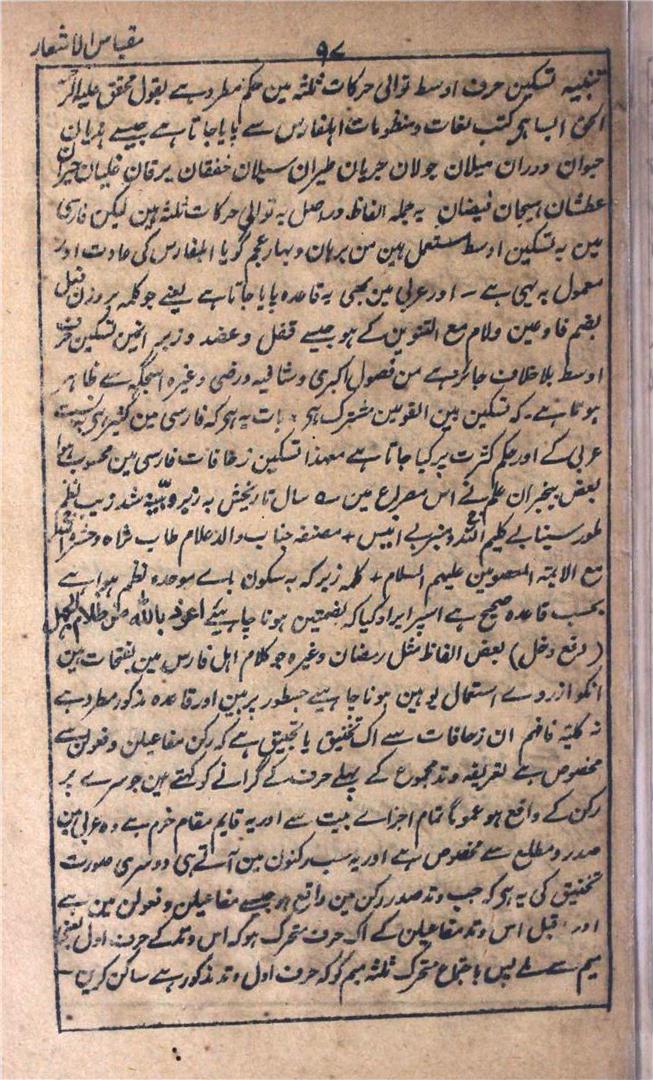 مقیاس الاشعار
۹۷
تنبیہ تسکین حرف اوسط توالی حرکات ثلثہ مین حکم مطرد ہے بقول محقق علیہ الرحمہ
الحق ایسا ہی کتب لغات و منظومات اہلفارس سے پایا جاتا ہے جیسے ہذیان
حیوان دوران میلان جولان جریان طیران سیلان خفقان یرقان غلیان حیران
عطشان ہیجان فیضان یہ جملہ الفاظ دراصل بہ توالی حرکات ثلثہ ہین لیکن فارسی
مین بہ تسکین اوسط مستعمل ہین من برہان و بہار عجم گویا اہلفارس کی عادت اور
معمول بہ یہی ہے ۔ اور عربی مین بھی یہ قاعدہ پایا جاتا ہے یعنے جو کلمہ بروزن فعل
بضم فا و عین و لام مع التنوین کے ہو جیسے قفل و عضد و زبر انمین تسکین حرف
اوسط بلا خلاف جائز ہے من فصول اکبری و شافیہ و رضی وغیرہ اسجگہ سے ظاہر
ہوتا ہے ۔ کہ تسکین بین القومین مشترک ہی بات یہ ہی کہ فارسی مین کثیر ہی بہ نسبت
عربی کے اور حکم کثرت پر کیا جاتا ہے معہذا تسکین زحافات فارسی مین محسوب ہے
بعض بیخبران علم نے اس مصراع مین ے سال تاریخش بہ زبر و بینہ شد زیب نظم
طور سینا بے کلیم اللہ و منبر بے انیس + مصنفہ جناب والد علام طاب ثراہ وحشرہ اللہ
مع الائمۃ المعصومین علیہم السلام + کلمہ زبر کہ بہ سکون باے موحدہ نظم ہوا ہے
بحسب قاعدہ صحیح ہے اسپر ایراد کیا کہ بضمتین ہونا چاہیے اعوذ باللہ من ظلام الجہل
( دفع دخل ) بعض الفاظ مثل رمضان وغیرہ جو کلام اہل فارس مین بفتحات ہین
انکو ازروے استعمال یوہین ہونا چاہیے جسطور پر ہین اور قاعدہ مذکور مطرد ہے
نہ کلیہ فافہم ان زحافات سے اک تخنیق یا تجنیق ہے کہ رکن مفاعیلن و فعولن سے
مخصوص ہے بتعریفہ وتد مجموع کے پہلے حرف کے گرانے کو کہتے ہین جو سرے پر
رکن کے واقع ہو عموماً تمام اجزاے بیت سے اور یہ قایم مقام خرم ہے وہ عربی مین
صدر و مطلع سے مخصوص ہے اور یہ سب رکنون مین آتے ہی دوسری صورت
تخنیق کی یہ ہی کہ جب وتد صدر رکن مین واقع ہو جیسے مفاعیلن و فعولن مین ہے
اور قبل اس وتد مفاعیلن کے اک حرف متحرک ہو کہ اس وتد کے حرف اول یعنی
میم سے ملے پس باجتماع متحرک ثلثہ میم کو کہ حرف اول وتد مذکور ہے ساکن کرین ۔